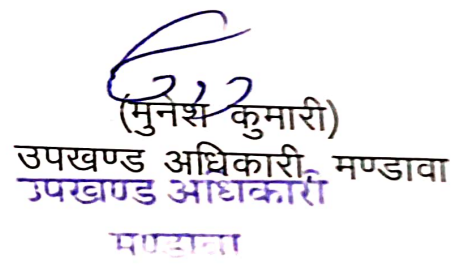 (मुनेश कुमारी)
उपखण्ड अधिकारी, मण्डावा
उपखण्ड अधिकारी
मण्डावा